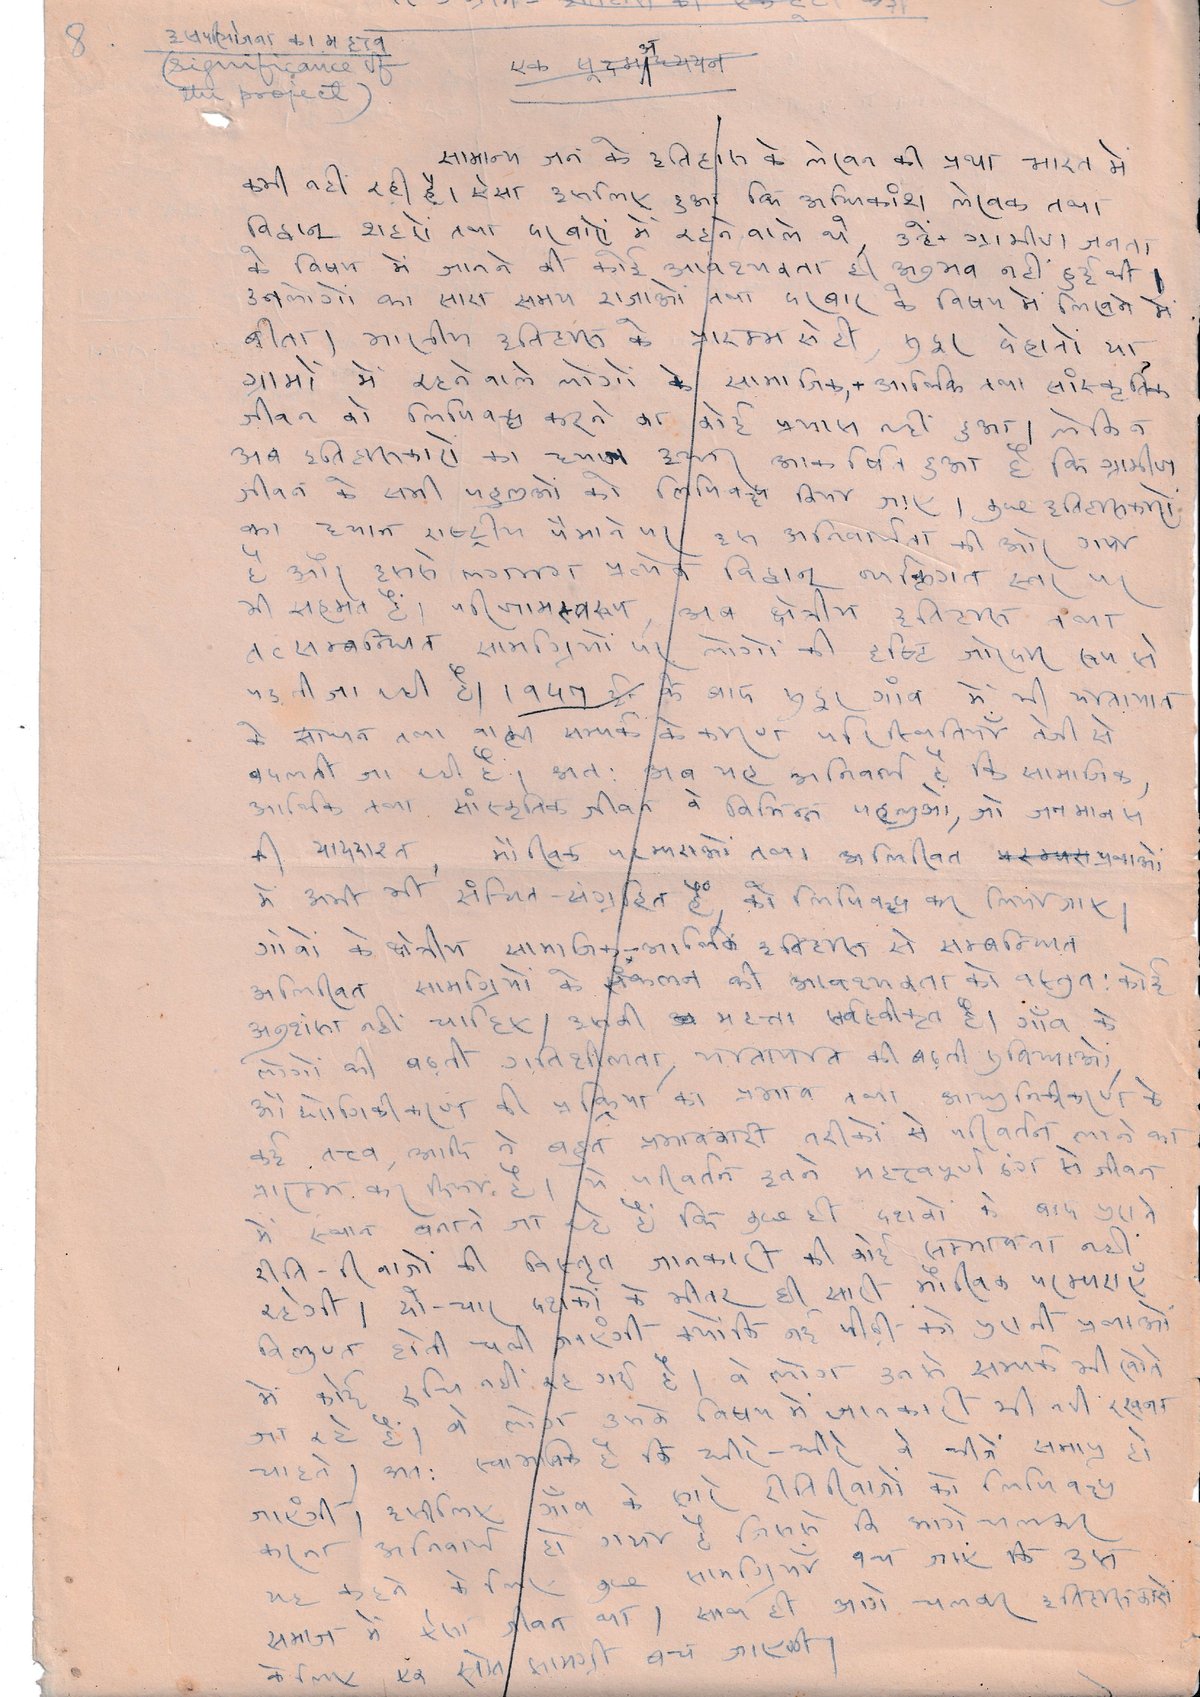 8.
का महत्व
(significance of
the project)
एक सूक्ष्म अध्ययन
सामान्य जन के इतिहास के लेखन की प्रथा भारत में
कभी नहीं रही है। ऐसा इसलिए हुआ कि अधिकांश लेखक तथा
विद्वान शहरों तथा दरबारों में रहने वाले थे, उन्हें ग्रामीण जनता
के विषय में जानने की कोई आवश्यकता ही अनुभव नहीं हुई थी।
उनलोगों का सारा समय राजाओं तथा दरबार के विषय में लिखने में
बीता। भारतीय इतिहास के प्रारम्भ से ही, सुदूर देहातों या
ग्रामों में रहनेवाले लोगों के सामाजिक, आर्थिक तथा सांस्कृतिक
जीवन को लिपिबद्ध करने का कोई प्रयास नहीं हुआ। लेकिन
अब इतिहासकारों का ध्यान इधर आकर्षित हुआ है कि ग्रामीण
जीवन के सभी पहलुओं को लिपिबद्ध किया जाए। कुछ इतिहासकारों
का ध्यान राष्ट्रीय पैमाने पर इस अनिवार्यता की ओर गया
है और इससे लगभग प्रत्येक विद्वान व्यक्तिगत स्तर पर
भी सहमत हैं। परिणामस्वरूप, अब क्षेत्रीय इतिहास तथा
तत्सम्बन्धित सामग्रियों पर लोगों की दृष्टि जोरदार रूप से
पड़ती जा रही है। १९४७ ई० के बाद सुदूर गाँव में भी यातायात
के साधन तथा वाह्य सम्पर्क के कारण परिस्थितियाँ तेजी से
बदलती जा रही हैं। अतः अब यह अनिवार्य है कि सामाजिक,
आर्थिक तथा सांस्कृतिक जीवन के विभिन्न पहलुओं, जो जनमानस
की याददास्त, मौखिक परम्पराओं तथा अलिखित परम्परा प्रथाओं
में अभी भी संचित-संग्रहित हैं, को लिपिबद्ध कर लिया जाए।
गांवों के क्षेत्रीय सामाजिक-आर्थिक इतिहास से सम्बन्धित
अलिखित सामग्रियों के संकलन की आवश्यकता को वस्तुतः कोई
अनुशंसा नहीं चाहिए। इसकी महत्ता सर्वस्वीकृत है। गाँव के
लोगों की बढ़ती गतिशीलता, यातायात की बढ़ती सुविधाओं,
औद्योगिकीकरण की प्रक्रिया का प्रभाव तथा आधुनिकीकरण के
कई तत्व, आदि ने बहुत प्रभावकारी तरीकों से परिवर्तन लाने का
प्रारम्भ कर दिया है। ये परिवर्तन इतने महत्वपूर्ण ढंग से जीवन
में स्थान बनाते जा रहे हैं कि कुछ ही दशकों के बाद पुराने
रीति-रीवाजों की विस्तृत जानकारी की कोई सम्भावना नहीं
रहेगी। दो-चार दशकों के भीतर ही सारी मौखिक परम्पराएँ
विलुप्त होती चली जाएँगी क्योंकि नई पीढ़ी को पुरानी प्रथाओं
में कोई रूचि नहीं रह गई है। वे लोग उनसे सम्पर्क भी खोते
जा रहे हैं। वे लोग उनके विषय में जानकारी भी नहीं रखना
चाहते। अतः स्वाभाविक है कि धीरे-धीरे ये चीजें समाप्त हो
जाएंगी। इसीलिए गाँव के सारे रीतिरिवाजों को लिपिबद्ध
करना अनिवार्य हो गया है जिससे कि आगे चलकर
यह कहने के लिए कुछ सामग्रियाँ बच जाएं कि उस
समाज में ऐसा जीवन था। साथ ही आगे चलकर इतिहासकारों
के लिए एक स्रोत सामग्री बच जाएगी।